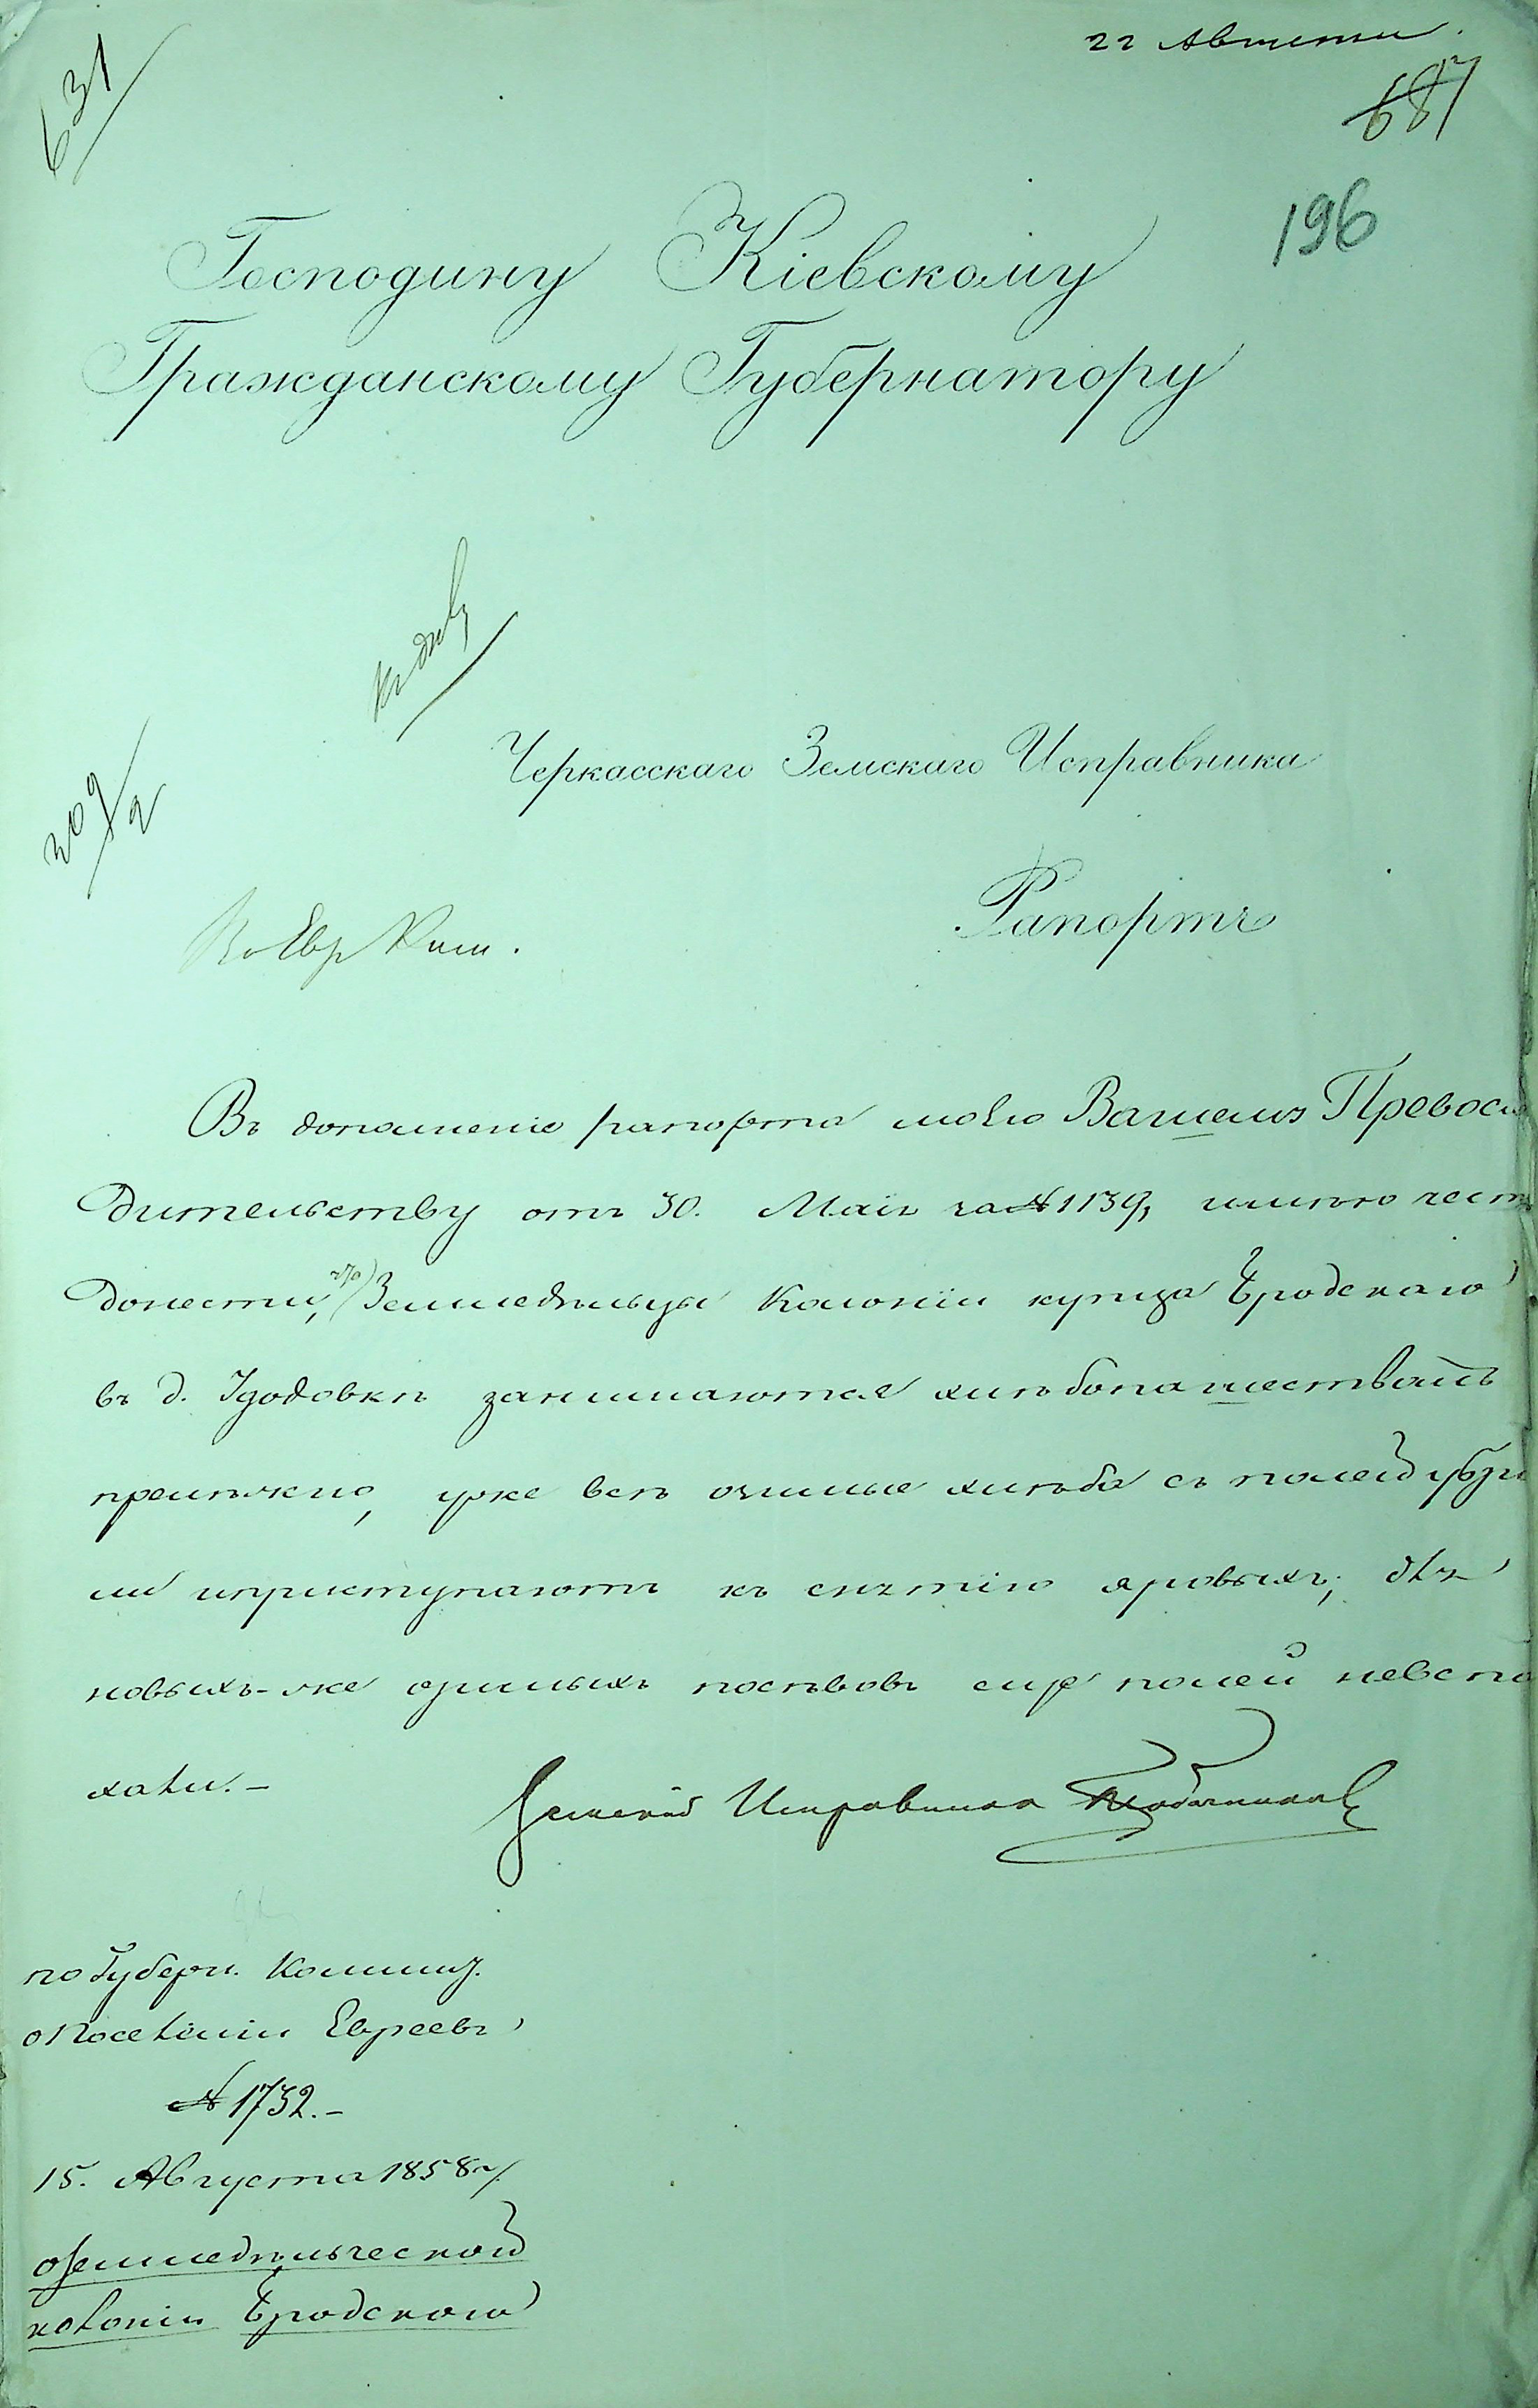 22 Августа.
631
687
196
Господину Кіевскому
Гражданскому Губернатору
къ дѣлу
Черкасскаго Земскаго Исправника
209/2
Рапортъ
По Евр Ком.
Въ дополненіе рапорта моего Вашему Превосхо
дительству отъ 30. Маія за № 1139, имѣю честь
донести, что Земледѣльцы Колоніи купца Бродскаго
въ д. Удодовкѣ занимаются хлѣбопашествомъ
прилѣжно, уже всѣ озимые хлѣба съ полей убра
ли и приступаютъ къ снятію яровыхъ; для
новыхъ-же озимыхъ посѣвовъ еще полей невспа
хали. –
Земскій Исправникъ
по Губерн. Коммис.
о Поселеніи Евреевъ
№ 1732. –
15. Августа 1858 г.
о земледѣльческой
колоніи Бродскаго